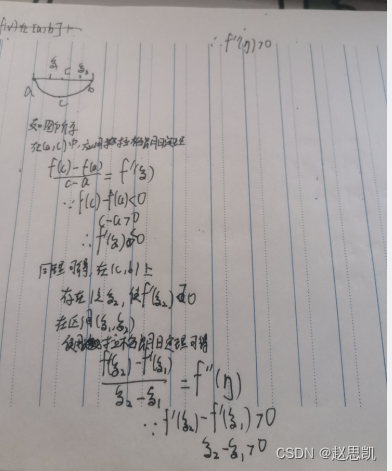 f(x)在[a,b]上
ξ₁ c ξ₂
a b
c
如图所示
在(a,c)中,应用拉格朗日定理
f(c)-f(a)
c-a
= f'(ξ)
∵ f(c)-f(a)<0
c-a>0
∴ f'(ξ)<0
同理可得,在(c,b)上
存在一点ξ₂,使f'(ξ₂)>0
在区间(ξ₁,ξ₂)
使用拉格朗日定理可得
f'(ξ₂)-f'(ξ₁)
ξ₂-ξ₁
= f''(η)
∵ f'(ξ₂)-f'(ξ₁)>0
ξ₂-ξ₁>0
∴ f''(η)>0
CSDN @赵思凯